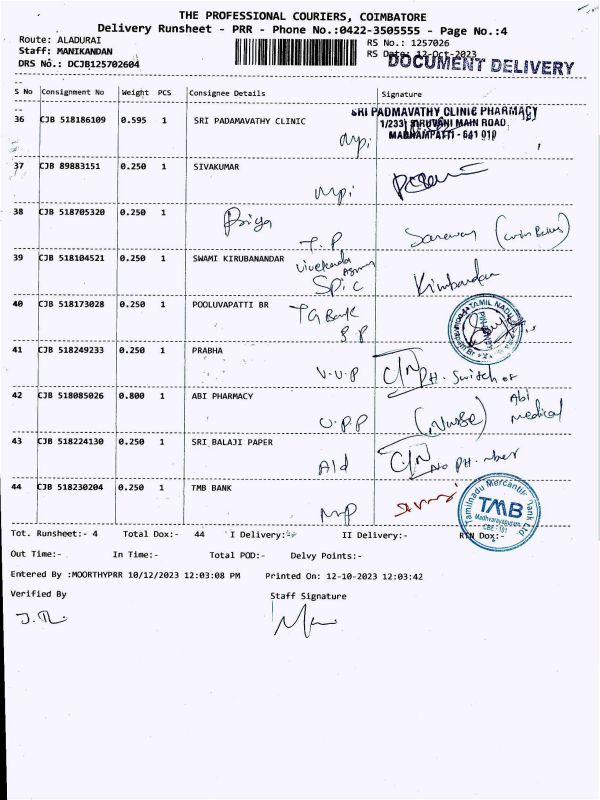 THE PROFESSIONAL COURIERS, COIMBATORE
Delivery Runsheet - PRR - Phone No.:0422-3505555 - Page No.:4
Route: ALADURAI
RS No.: 1257026
Staff: MANIKANDAN
RS Date: 12-Oct-2023
DRS No.: DCJB125702604
DOCUMENT DELIVERY
S No Consignment No Weight PCS Consignee Details Signature
36 CJB 518186109 0.595 1 SRI PADAMAVATHY CLINIC
SRI PADMAVATHY CLINIC PHARMACY
1/233, MAIN ROAD,
MADHAMPATTI - 641 010
37 CJB 89883151 0.250 1 SIVAKUMAR
38 CJB 518705320 0.250 1
Priya
T.P
39 CJB 518104521 0.250 1 SWAMI KIRUBANANDAR
Vivekanda
40 CJB 518173028 0.250 1 POOLUVAPATTI BR
TG Bank
TAMIL NADU
41 CJB 518249233 0.250 1 PRABHA
V.V.P
C/N PH. Switch of
42 CJB 518085026 0.800 1 ABI PHARMACY
U.P.P
(Nurse)
Abi
medical
43 CJB 518224130 0.250 1 SRI BALAJI PAPER
Ald
C/N No PH. nber
44 CJB 518230204 0.250 1 TMB BANK
Tamilnadu Mercantile Bank Ltd
TMB
CBE
Tot. Runsheet:- 4 Total Dox:- 44 I Delivery:- II Delivery:- RTN Dox:-
Out Time:- In Time:- Total POD:- Delvy Points:-
Entered By :MOORTHYPRR 10/12/2023 12:03:08 PM Printed On: 12-10-2023 12:03:42
Verified By Staff Signature